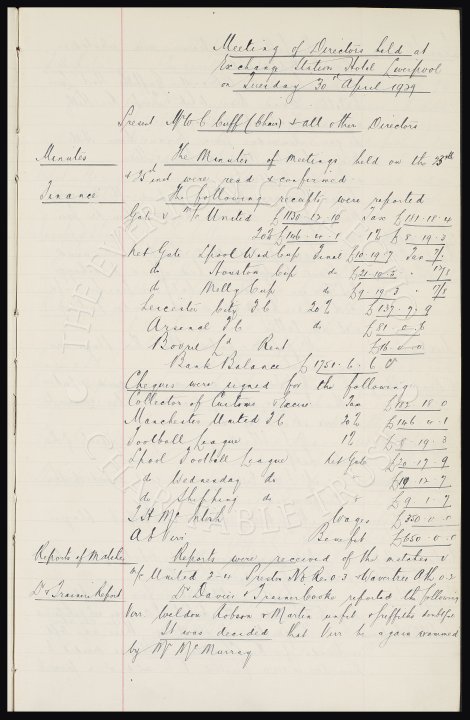 Meeting of Directors held at
Exchange Station Hotel Liverpool
on Tuesday 30th April 1929
Present Mr W C Cuff (Chair) & all other Directors
Minutes The Minutes of meetings held on the 23rd
& 25th inst were read & confirmed.
Finance The following receipts were reported
Gate v M/c United £1130-12-10 Tax £181-18-0
20% £146-4-1 1% £8-19-3
Net Gate L'pool Wed Cup Final £10-19-7 Tax
do Houston Cup do £21-10-3
do Melly Cup do £9-19-3
Leicester City F C 20% £137-9-9
Arsenal F C do £81-0-6
Bovril Ld Rent £16-0-0
Bank Balance £1751-6-6
Cheques were signed for the following
Collector of Customs & Excise Tax £182-18-0
Manchester United F C 20% £146-4-1
Football League 1% £8-19-3
L'pool Football League Net Gate £20-17-9
do Wednesday do £19-12-7
do Shipping do £9-1-7
W H Mc Intosh Wages £350-0-0
A E Virr Benefit £650-0-0
Reports of Matches Reports were received of the matches v
M/c United Preston N E Res 0-3 Wavertree Ath 0-2
Dr & Trainers Report Dr Davies & Trainer Cooke reported the following
Virr Weldon Robson & Martin unfit & Griffiths doubtful
It was decided that Virr be again examined
by Mr McMurray
THE EVERTON
CHARITABLE TRUST